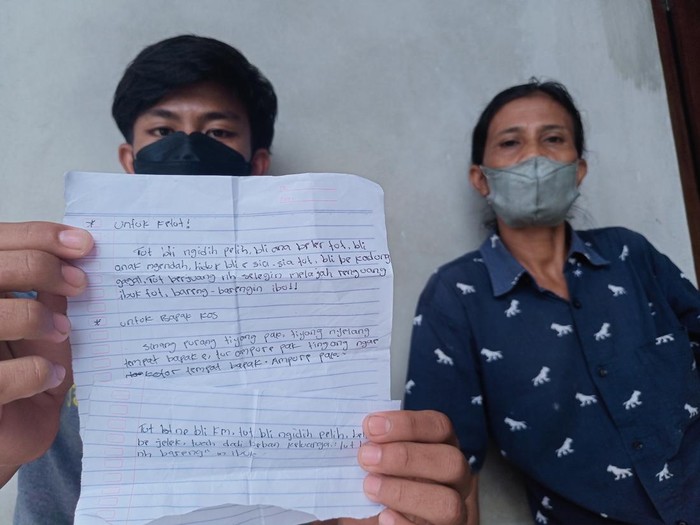 * Untuk Ketut!
Tut bli ngidih pelih, bli ana beler tut, bli
anak ngendah, hidup bli e sia-sia tut, bli be kadung
gagal, tut berjuang nh selegin melajah tenguang
ibuk tut, bareng-barengin ibu!!
* untuk Bapap Kos
tiyang pap, tiyang nyelang
tempat bapak e, tur ampure pak tiyang ngae
kotor tempat bapak. Ampure pap.
Tut bli KM, tut, bli ngidih pelih,
be jelek, dadi beban keluarga, tut
nh bareng ibuk